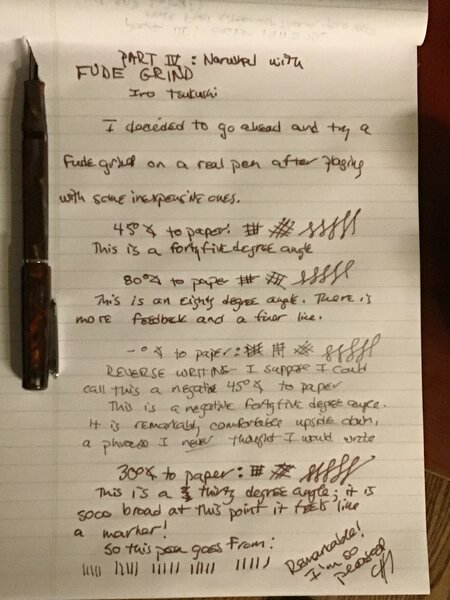 PART IV: Narwhal with
FUDE GRIND
Iro Tsukushi
I decided to go ahead and try a
Fude grind on a real pen after playing
with some inexpensive ones.
45°∡ to paper:
This is a forty five degree angle
80°∡ to paper
This is an eighty degree angle. There is
more feedback and a finer line.
-°∡ to paper:
REVERSE WRITING I suppose I could
call this a negative 45°∡ to paper
This is a negative forty five degree angle.
It is remarkably comfortable upside down,
a phrase I never thought I would write
30°∡ to paper:
This is a thirty degree angle; it is
sooo broad at this point it feels like
a marker!
So this pen goes from:
Remarkable!
I'm so
pleased